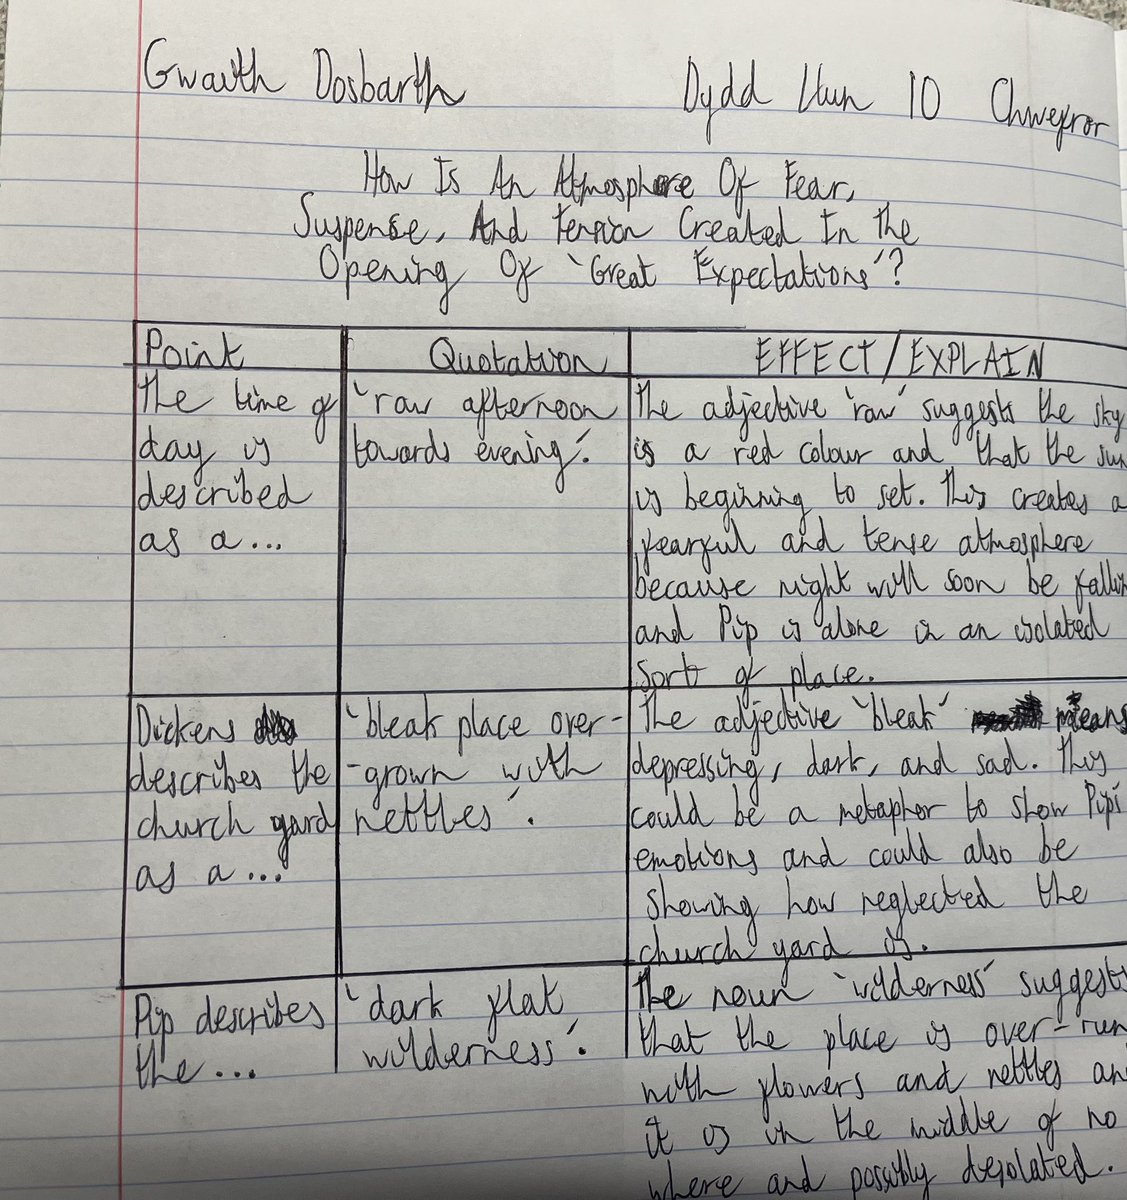 Gwaith Dosbarth Dydd Llun 10 Chwefror
How Is An Atmosphere Of Fear,
Suspense, And Tension Created In The
Opening Of 'Great Expectations'?
Point
The time of
day is
described
as a...
Quotation
'raw afternoon
towards evening'.
EFFECT/EXPLAIN
The adjective 'raw' suggests the sky
is a red colour and that the sun
is beginning to set. This creates a
fearful and tense atmosphere
because night will soon be
and Pip is alone in an isolated
sort of place.
Dickens
describes the
church yard
as a...
'bleak place over-
-grown with
nettles'.
The adjective 'bleak' means
depressing, dark, and sad. This
could be a metaphor to show
emotions and could also be
showing how neglected the
church yard is.
Pip describes
the...
'dark flat
wilderness'.
The noun 'wilderness' suggests
that the place is over-run
with flowers and nettles
it is in the middle of no
where and possibly desolated.